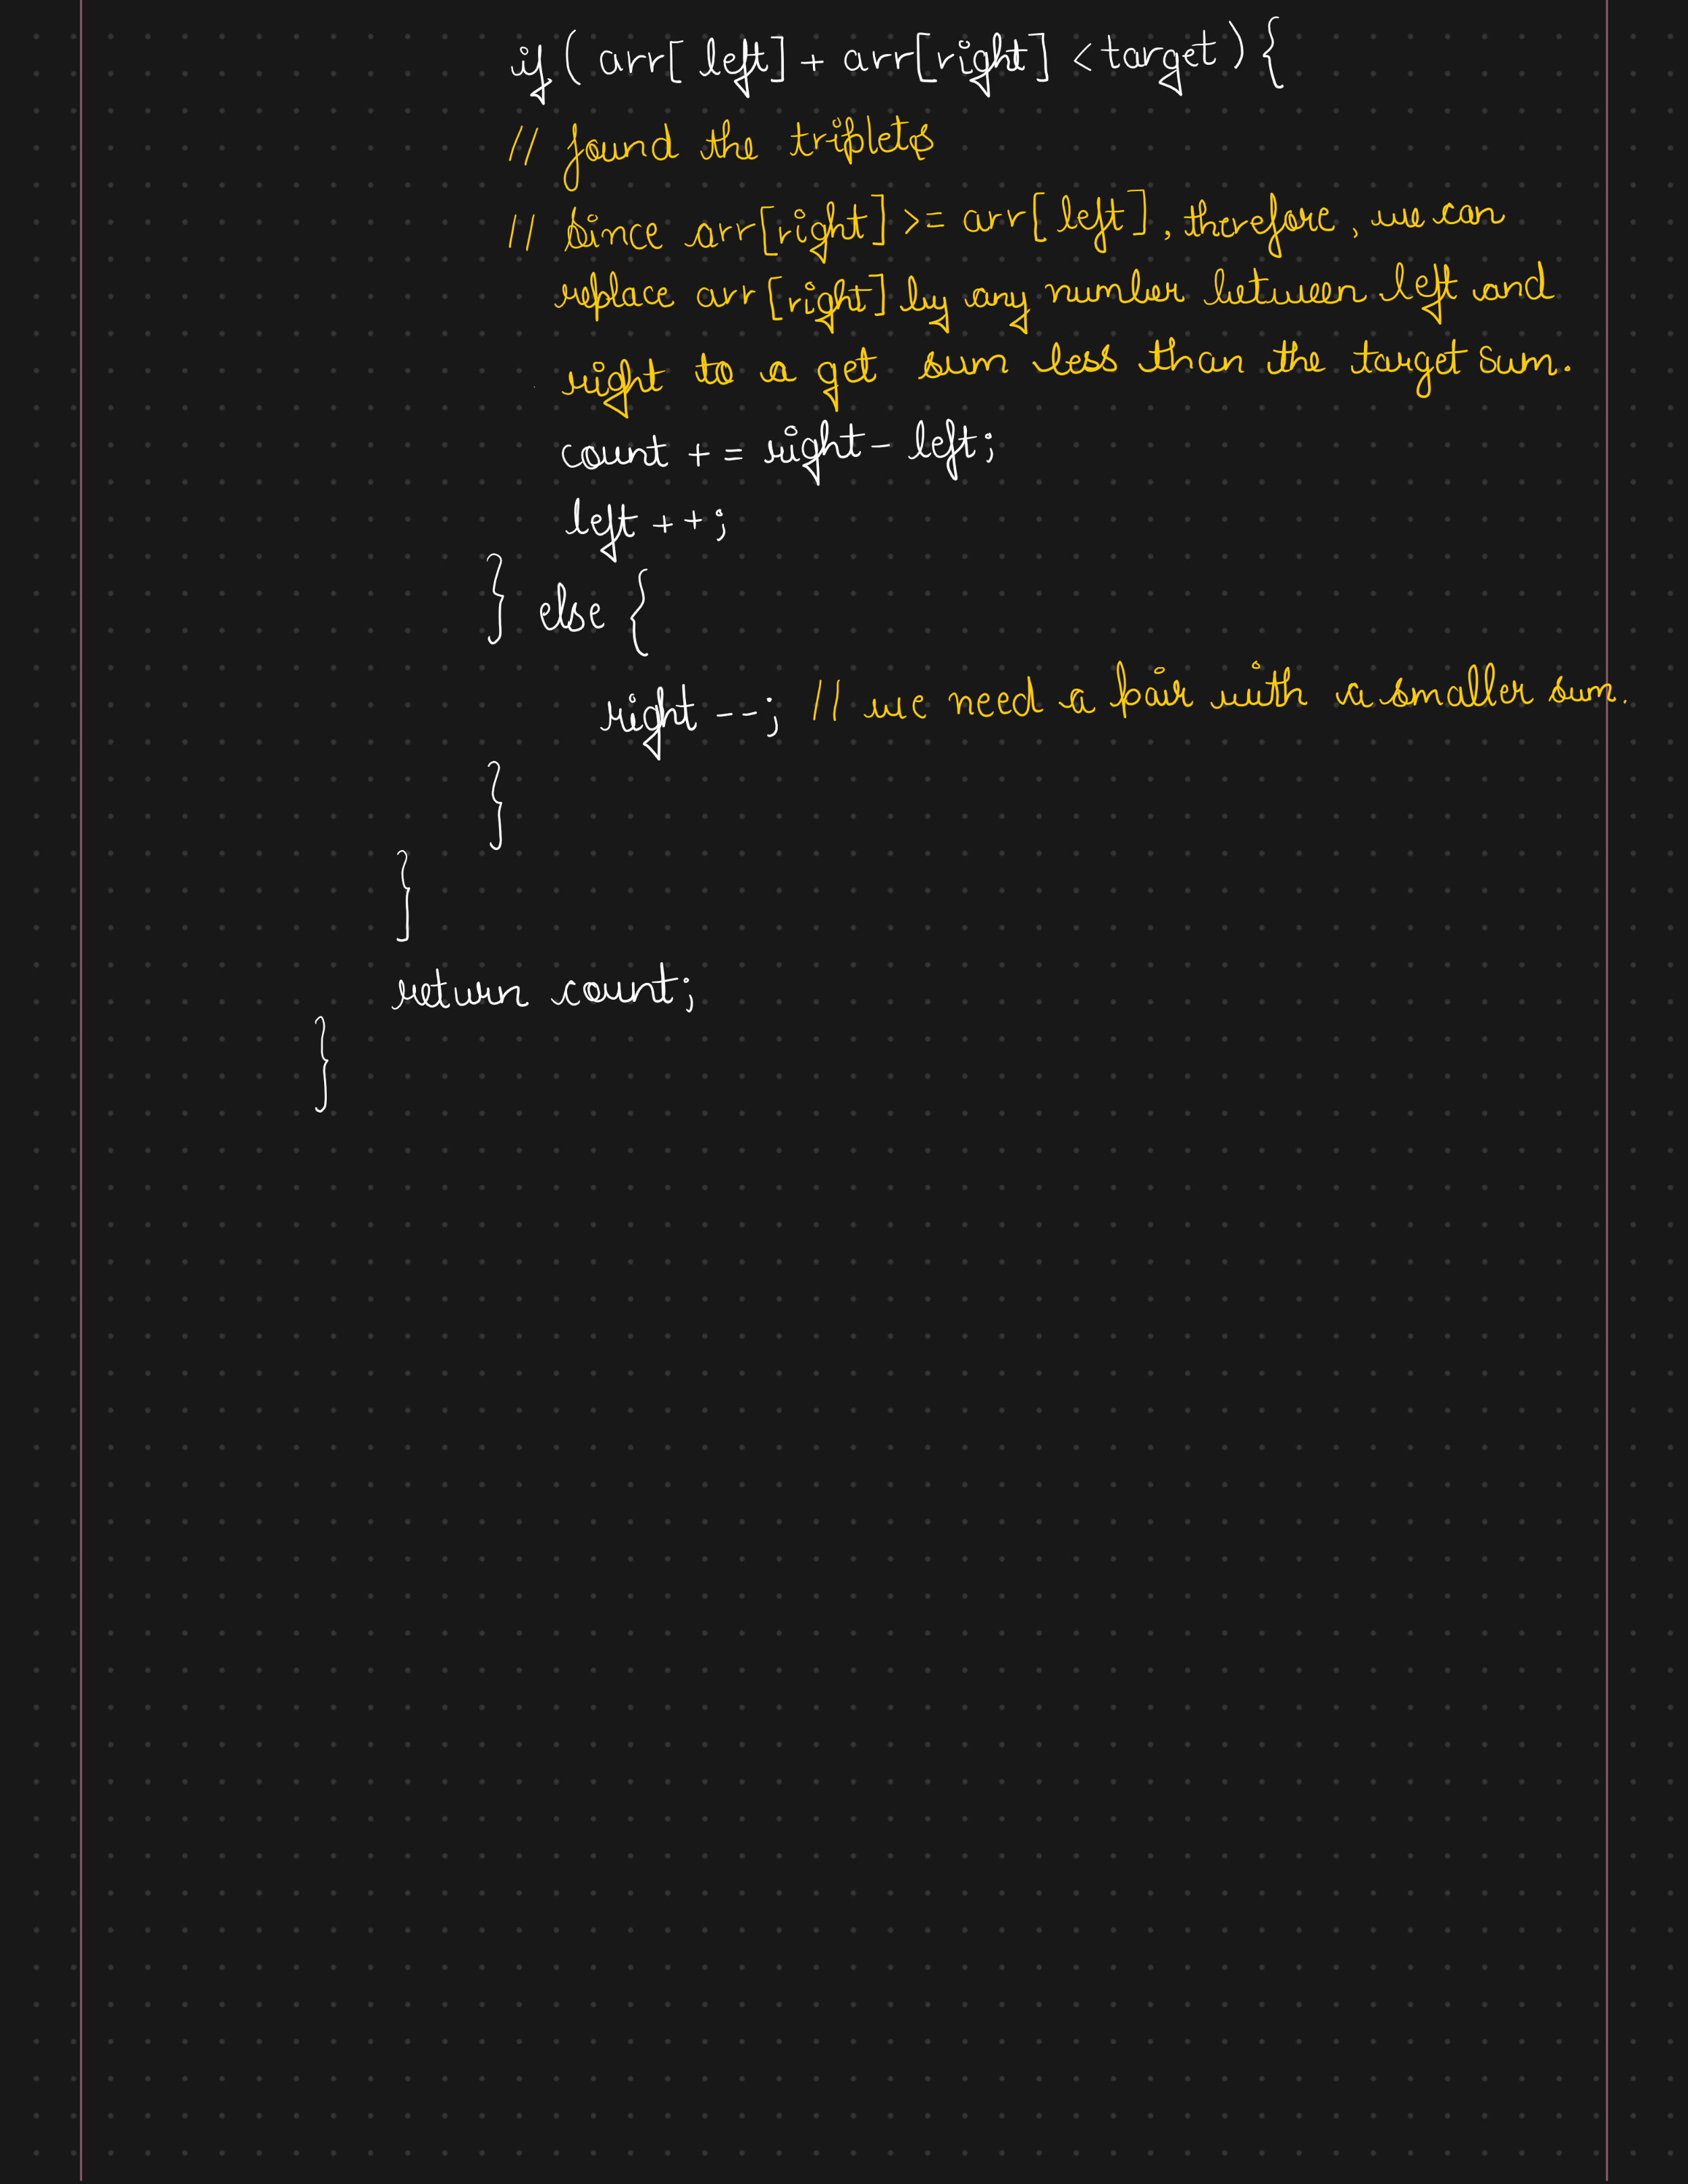 if ( arr[ left] + arr[right] < target ) {
// found the triplets
// Since arr[right] >= arr[ left ], therefore, we can
replace arr [right] by any number between left and
right to a get sum less than the target sum.
count + = right - left;
left + +;
} else {
right --; // we need a pair with a smaller sum.
}
}
return count;
}